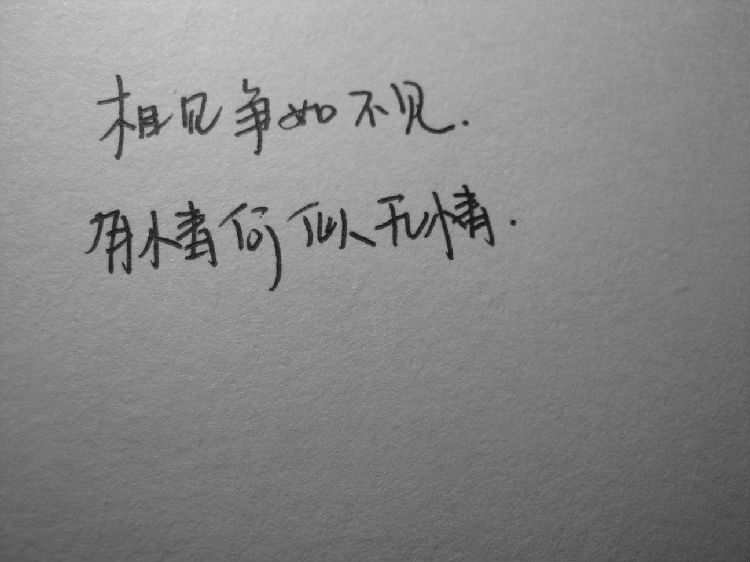 相见争如不见.
有情何似无情.